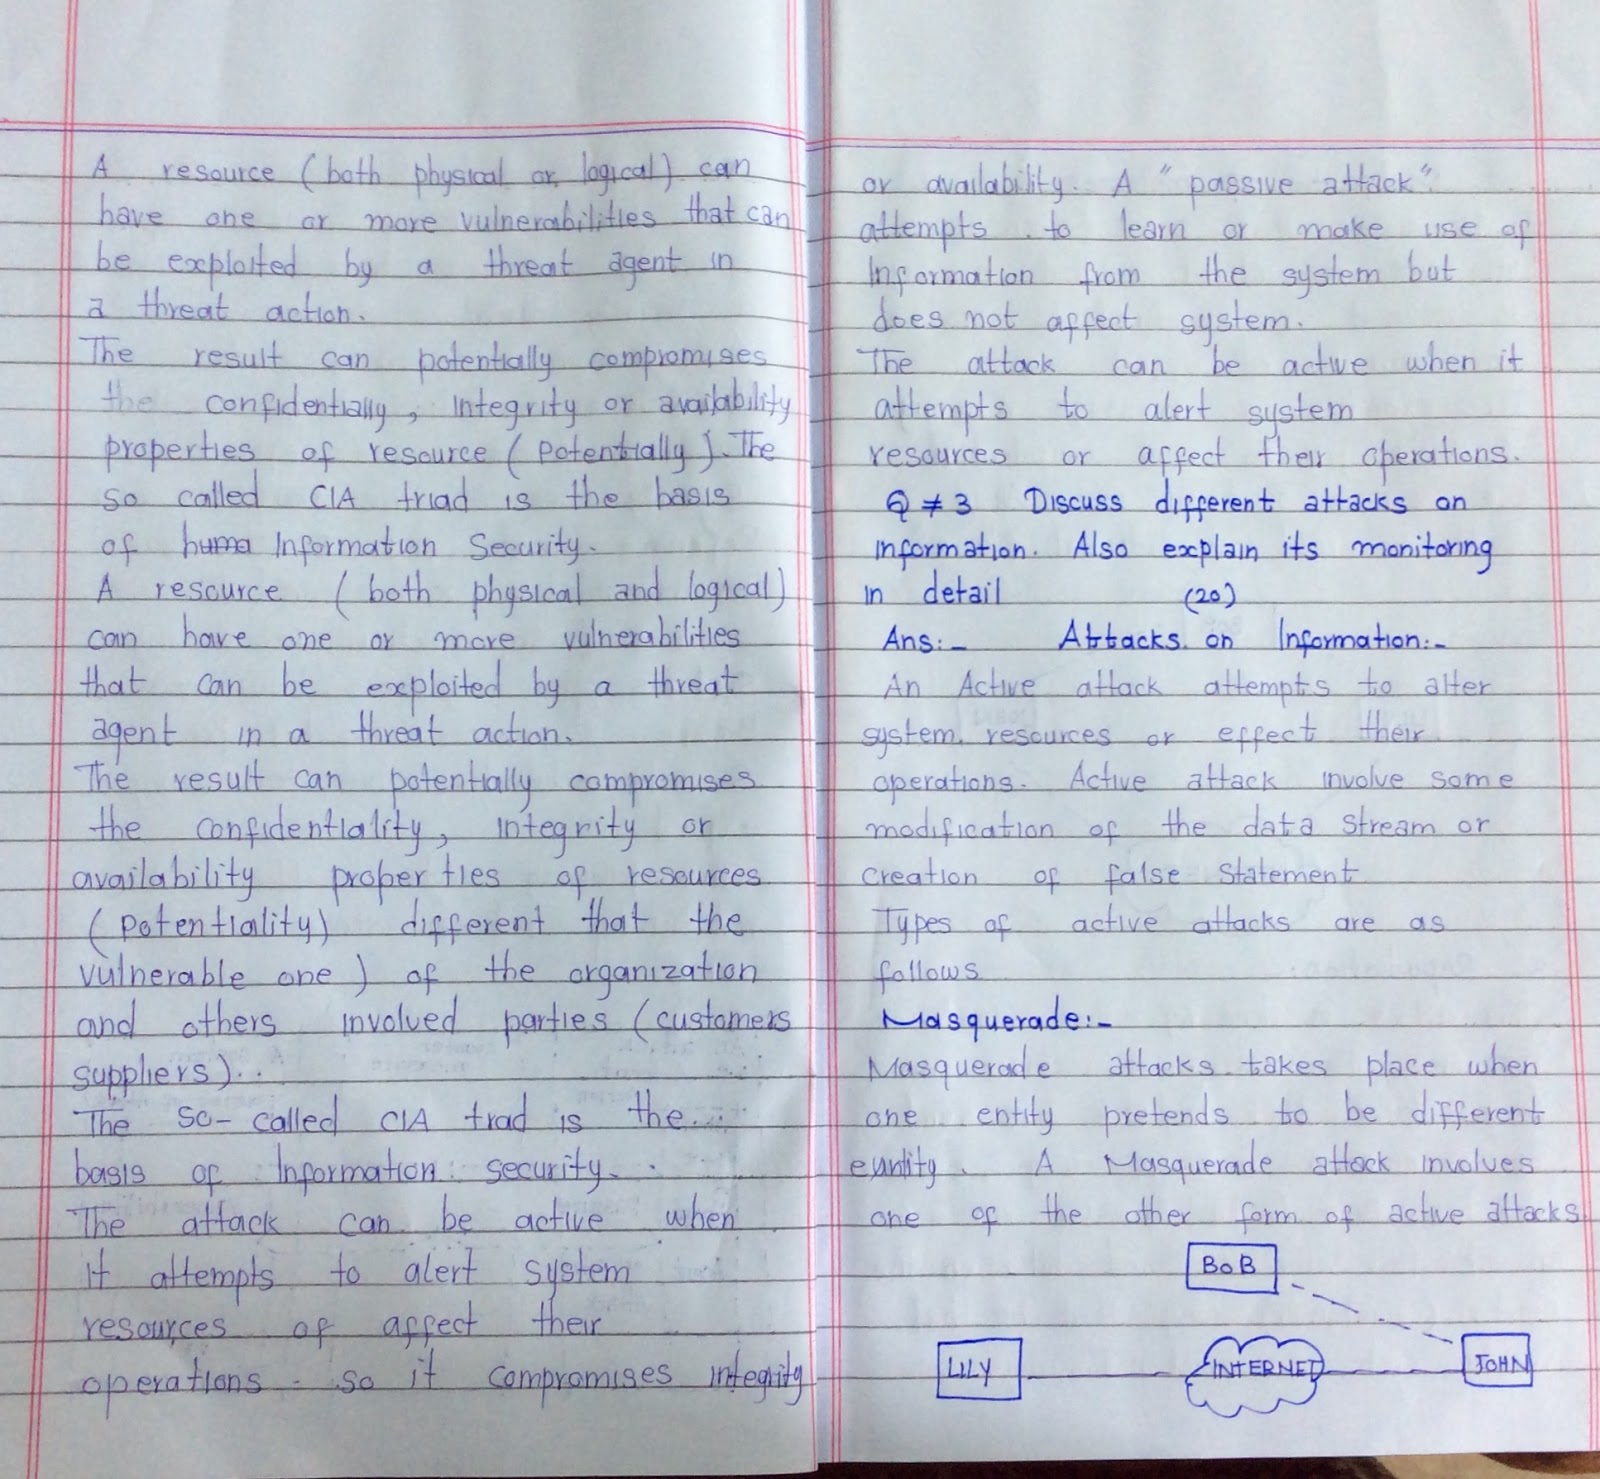 A resource (both physical or logical) can
have one or more vulnerabilities that can
be exploited by a threat agent in
a threat action.
The result can potentially compromises
the confidentially, integrity or availability
properties of resource (potentially). The
so called CIA triad is the basis
of huma Information Security.
A resource (both physical and logical)
can have one or more vulnerabilities
that can be exploited by a threat
agent in a threat action.
The result can potentially compromises
the confidentiality, integrity or
availability properties of resources
(potentiality) different that the
vulnerable one) of the organization
and others involved parties (customers
suppliers)..
The so-called CIA trad is the
basis of Information security.
The attack can be active when
it attempts to alert system
resources of affect their
operations. so it compromises integrity
or availability. A "passive attack"
attempts to learn or make use of
Information from the system but
does not affect system.
The attack can be active when it
attempts to alert system
resources or affect their operations.
Q # 3 Discuss different attacks on
information. Also explain its monitoring
in detail (20)
Ans:- Attacks on Information:-
An Active attack attempts to alter
system resources or effect their
operations. Active attack involve some
modification of the data stream or
creation of false statement
Types of active attacks are as
follows
Masquerade:-
Masquerade attacks takes place when
one entity pretends to be different
euntity. A Masquerade attack involves
one of the other form of active attacks
BOB
LILY INTERNET JOHN